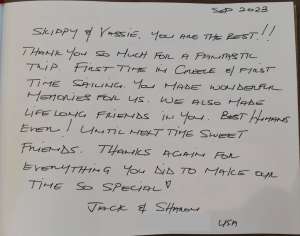 SEP 2023
SKIPPY & VASSIE. YOU ARE THE BEST!!
THANK YOU SO MUCH FOR A FANTASTIC
TRIP. FIRST TIME IN GREECE & FIRST
TIME SAILING. YOU MADE WONDERFUL
MEMORIES FOR US. WE ALSO MADE
LIFELONG FRIENDS IN YOU. BEST HUMANS
EVER! UNTIL NEXT TIME SWEET
FRIENDS. THANKS AGAIN FOR
EVERYTHING YOU DID TO MAKE OUR
TIME SO SPECIAL♡
JACK & SHARON
USA